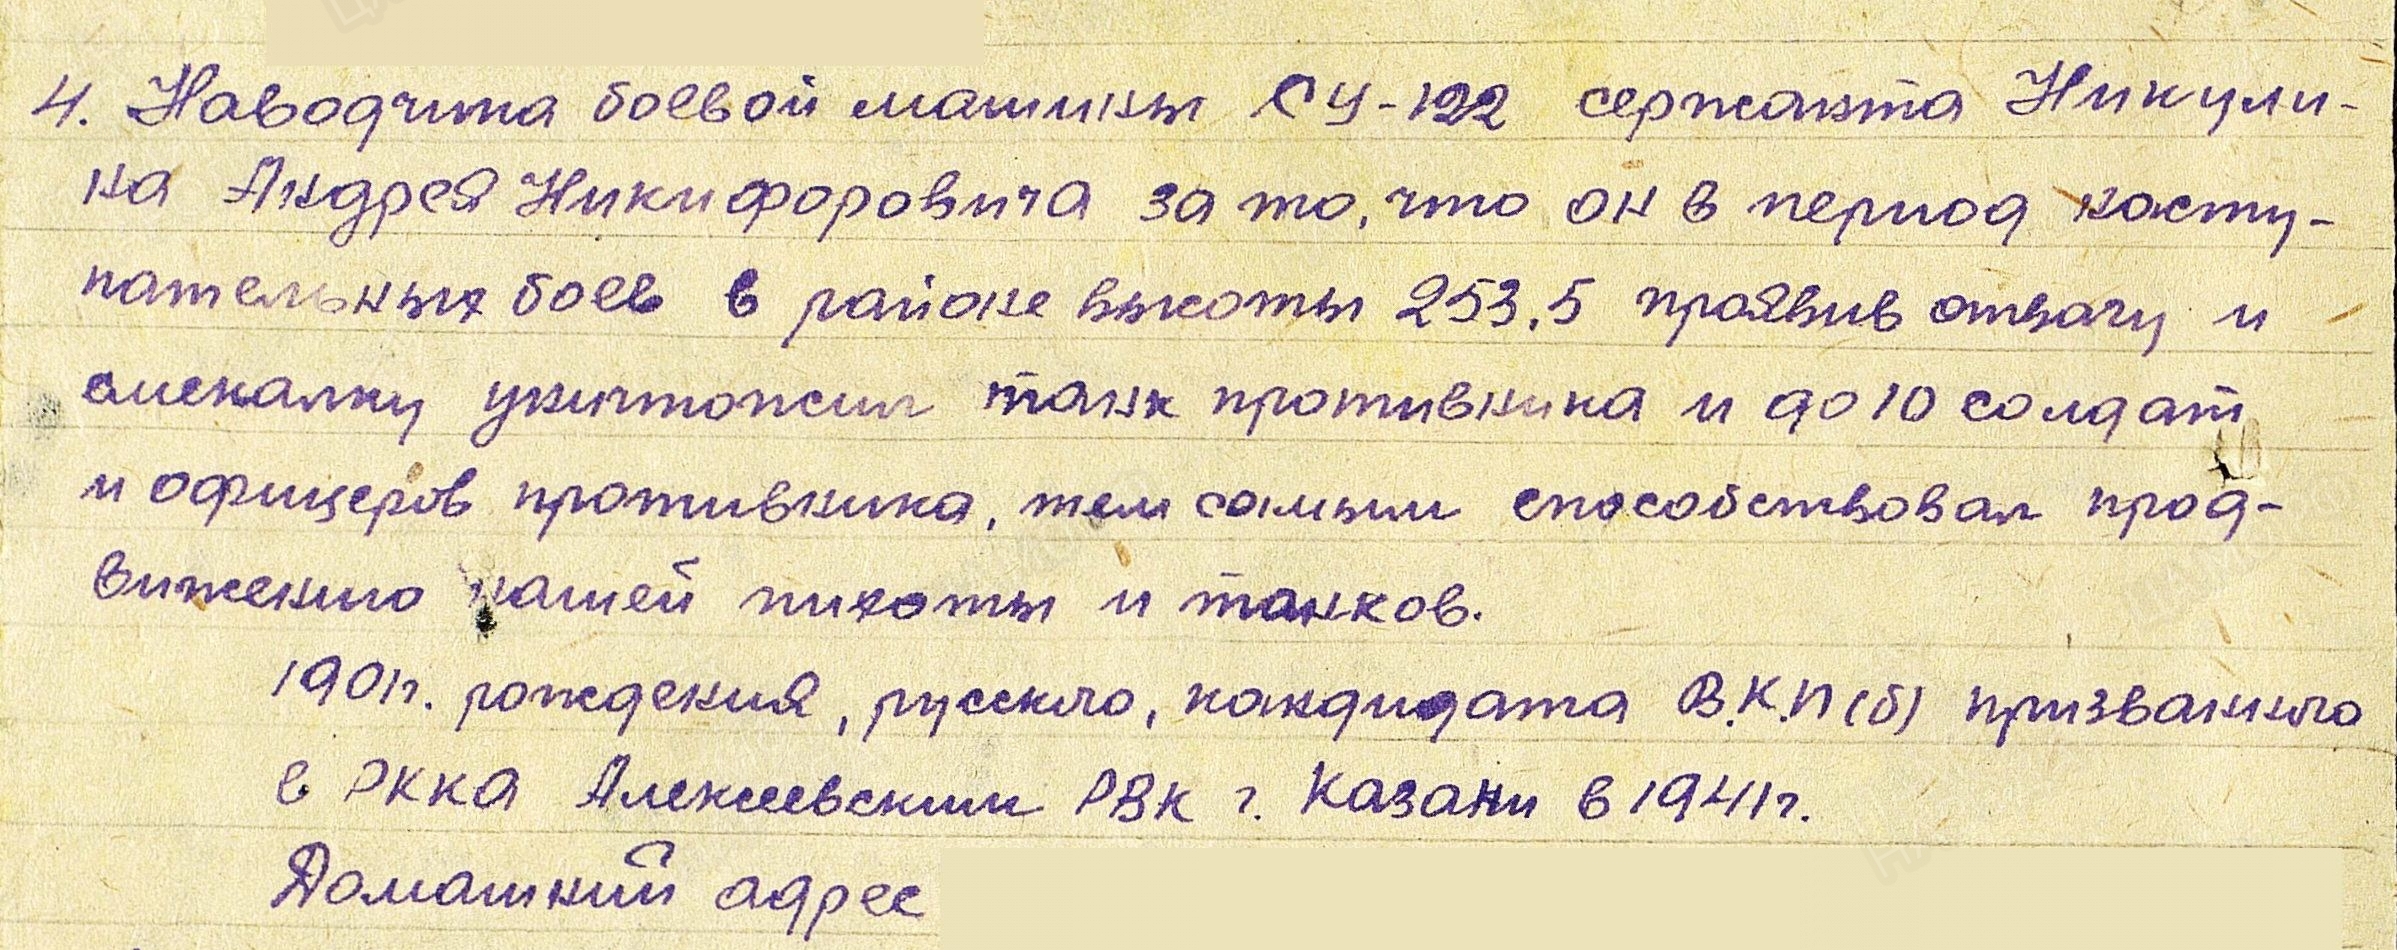 4. Наводчика боевой машины СУ-122 сержанта Никули-
на Андрея Никифоровича за то, что он в период насту-
пательных боев в районе высоты 253,5 проявив отвагу и
смекалку уничтожил танк противника и до 10 солдат
и офицеров противника, тем самым способствовал прод-
вижению нашей пихоты и танков.
1901г. рождения, русского, кандидата В.К.П(б) призванного
в РККА Алексеевским РВК г. Казани в 1941г.
Домашний адрес